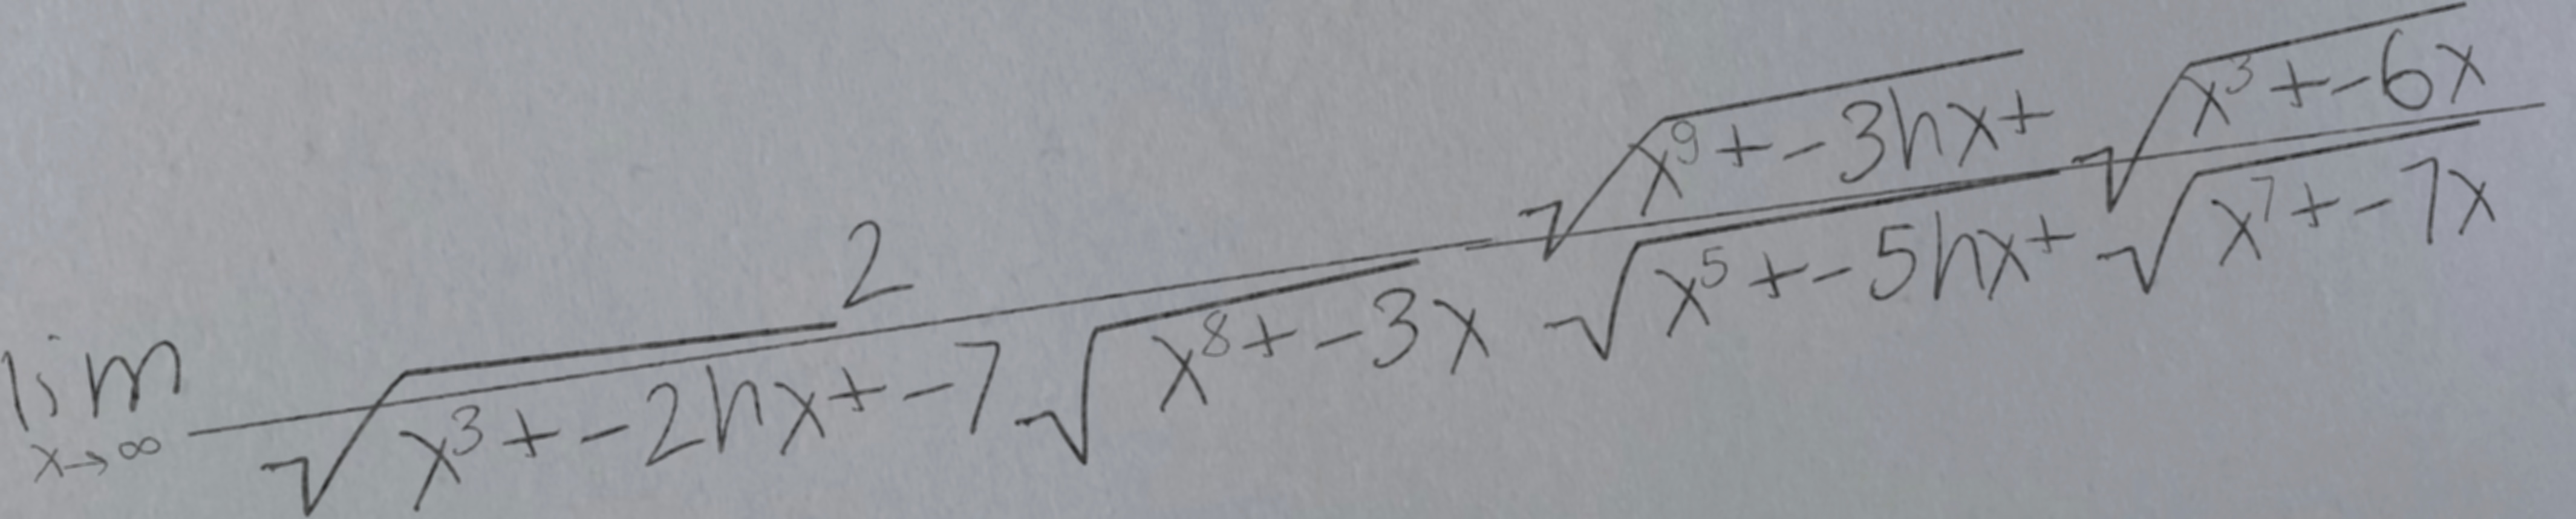 \lim_{x \to \infty} \frac{2}{\sqrt{x^3+-2hx+-7}\sqrt{x^8+-3x}} - \frac{\sqrt{x^9+-3hx+}\sqrt{x^3+-6x}}{\sqrt{x^5+-5hx+}\sqrt{x^7+-7x}}